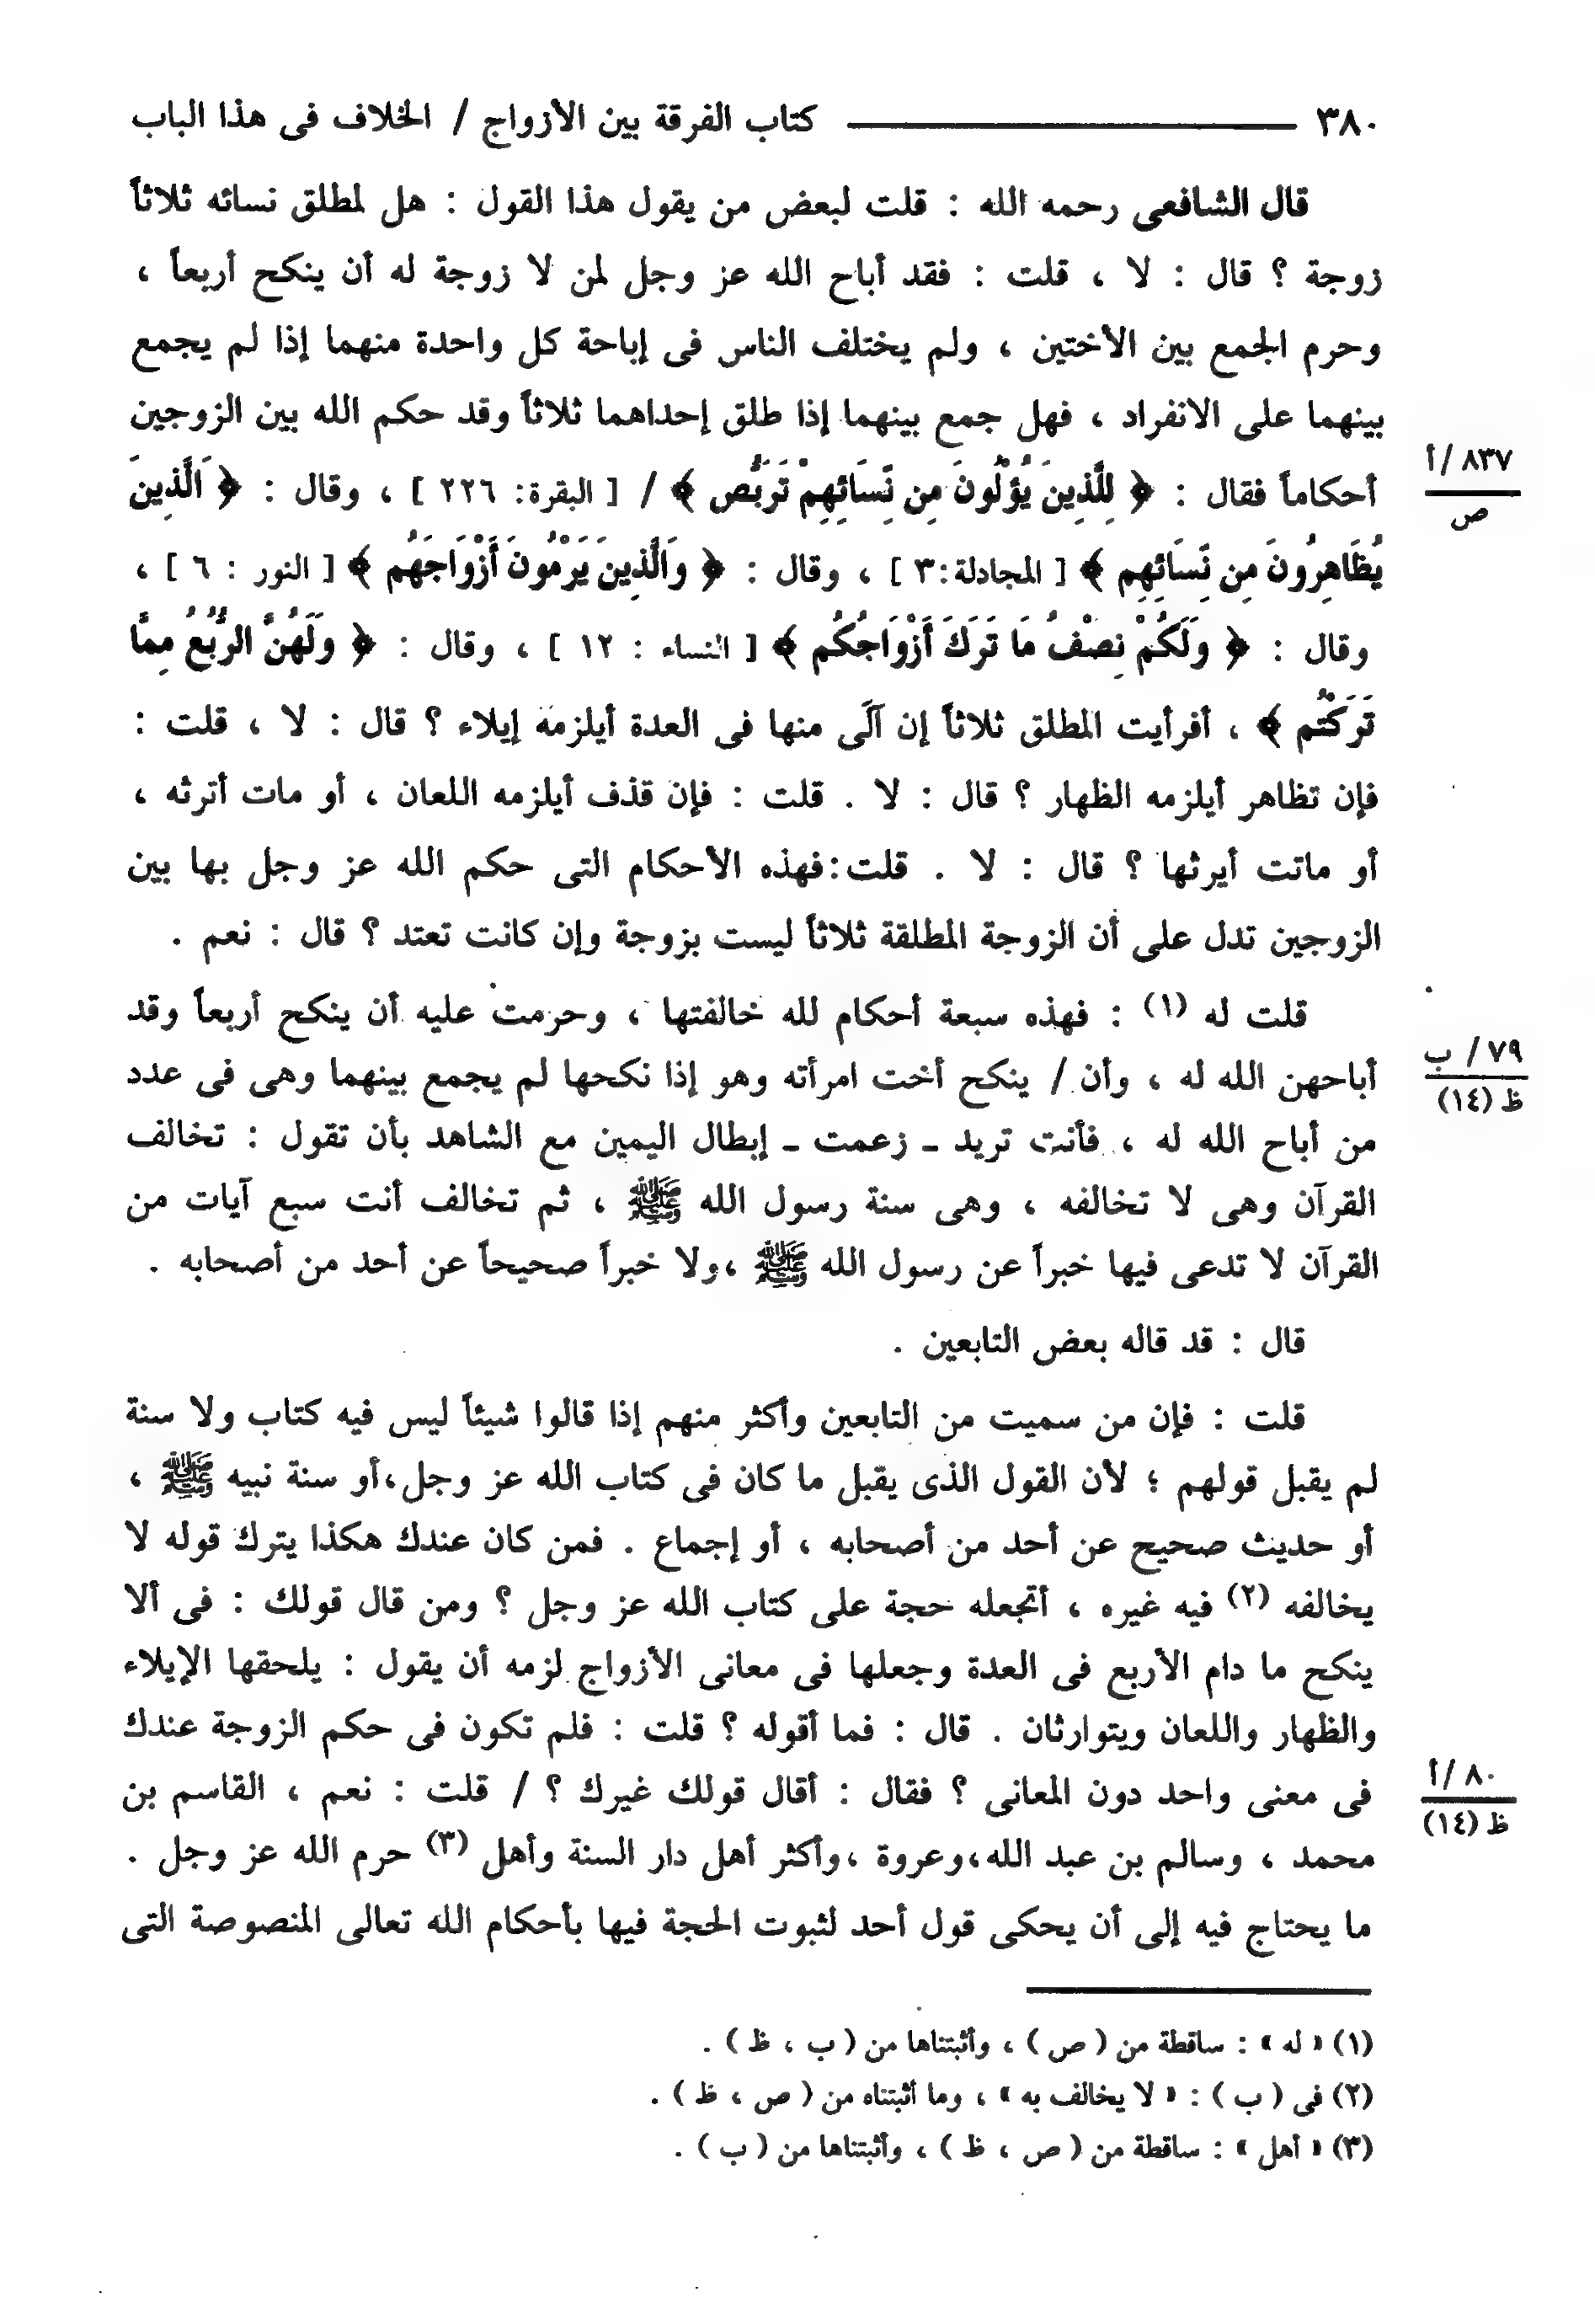 ٣٨٠ كتاب الفرقة بين الأزواج / الخلاف فى هذا الباب
قال الشافعى رحمه الله : قلت لبعض من يقول هذا القول : هل لمطلق نسائه ثلاثاً
زوجة ؟ قال : لا ، قلت : فقد أباح الله عز وجل لمن لا زوجة له أن ينكح أربعاً ،
وحرم الجمع بين الأختين ، ولم يختلف الناس فى إباحة كل واحدة منهما إذا لم يجمع
بينهما على الانفراد ، فهل جمع بينهما إذا طلق إحداهما ثلاثاً وقد حكم الله بين الزوجين
أحكاماً فقال : ﴿ لِلَّذِينَ يُؤْلُونَ مِن نِّسَائِهِمْ تَرَبُّصُ ﴾ / [ البقرة: ٢٢٦ ] ، وقال : ﴿ الَّذِينَ
٨٣٧ /أ
ص
يُظَاهِرُونَ مِن نِّسَائِهِم ﴾ [ المجادلة:٣ ] ، وقال : ﴿ وَالَّذِينَ يَرْمُونَ أَزْوَاجَهُم ﴾ [ النور : ٦ ] ،
وقال : ﴿ وَلَكُمْ نِصْفُ مَا تَرَكَ أَزْوَاجُكُم ﴾ [ النساء : ١٢ ] ، وقال : ﴿ وَلَهُنَّ الرُّبُعُ مِمَّا
تَرَكْتُم ﴾ ، أفرأيت المطلق ثلاثاً إن آلَى منها فى العدة أيلزمه إيلاء ؟ قال : لا ، قلت :
فإن تظاهر أيلزمه الظهار ؟ قال : لا . قلت : فإن قذف أيلزمه اللعان ، أو مات أترثه ،
أو ماتت أيرثها ؟ قال : لا . قلت:فهذه الأحكام التى حكم الله عز وجل بها بين
الزوجين تدل على أن الزوجة المطلقة ثلاثاً ليست بزوجة وإن كانت تعتد ؟ قال : نعم .
قلت له (١) : فهذه سبعة أحكام لله خالفتها ، وحرمت عليه أن ينكح أربعاً وقد
أباحهن الله له ، وأن / ينكح أخت امرأته وهو إذا نكحها لم يجمع بينهما وهى فى عدد
٧٩/ ب
ظ (١٤)
من أباح الله له ، فأنت تريد ـ زعمت ـ إبطال اليمين مع الشاهد بأن تقول : تخالف
القرآن وهى لا تخالفه ، وهى سنة رسول الله ﷺ ، ثم تخالف أنت سبع آيات من
القرآن لا تدعى فيها خبراً عن رسول الله ﷺ ،ولا خبراً صحيحاً عن أحد من أصحابه .
قال : قد قاله بعض التابعين .
قلت : فإن من سميت من التابعين وأكثر منهم إذا قالوا شيئاً ليس فيه كتاب ولا سنة
لم يقبل قولهم ؛ لأن القول الذى يقبل ما كان فى كتاب الله عز وجل،أو سنة نبيه ﷺ ،
أو حديث صحيح عن أحد من أصحابه ، أو إجماع . فمن كان عندك هكذا يترك قوله لا
يخالفه (٢) فيه غيره ، أتجعله حجة على كتاب الله عز وجل ؟ ومن قال قولك : فى ألا
ينكح ما دام الأربع فى العدة وجعلها فى معانى الأزواج لزمه أن يقول : يلحقها الإيلاء
والظهار واللعان ويتوارثان . قال : فما أقوله ؟ قلت : فلم تكون فى حكم الزوجة عندك
فى معنى واحد دون المعانى ؟ فقال : أقال قولك غيرك ؟ / قلت : نعم ، القاسم بن
٨٠ /أ
ظ (١٤)
محمد ، وسالم بن عبد الله،وعروة ،وأكثر أهل دار السنة وأهل (٣) حرم الله عز وجل .
ما يحتاج فيه إلى أن يحكى قول أحد لثبوت الحجة فيها بأحكام الله تعالى المنصوصة التى
(١) « له » : ساقطة من ( ص ) ، وأثبتناها من ( ب ، ظ ) .
(٢) فى ( ب ) : « لا يخالف به » ، وما أثبتناه من ( ص ، ظ ) .
(٣) « أهل » : ساقطة من ( ص ، ظ ) ، وأثبتناها من ( ب ) .